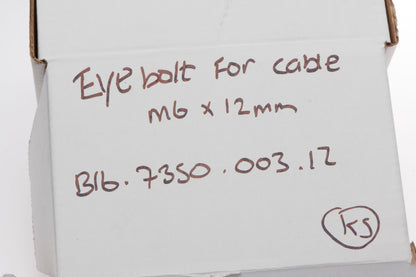 Eye bolt for cable
M6 x 12mm
B16.7350.003.12
KS